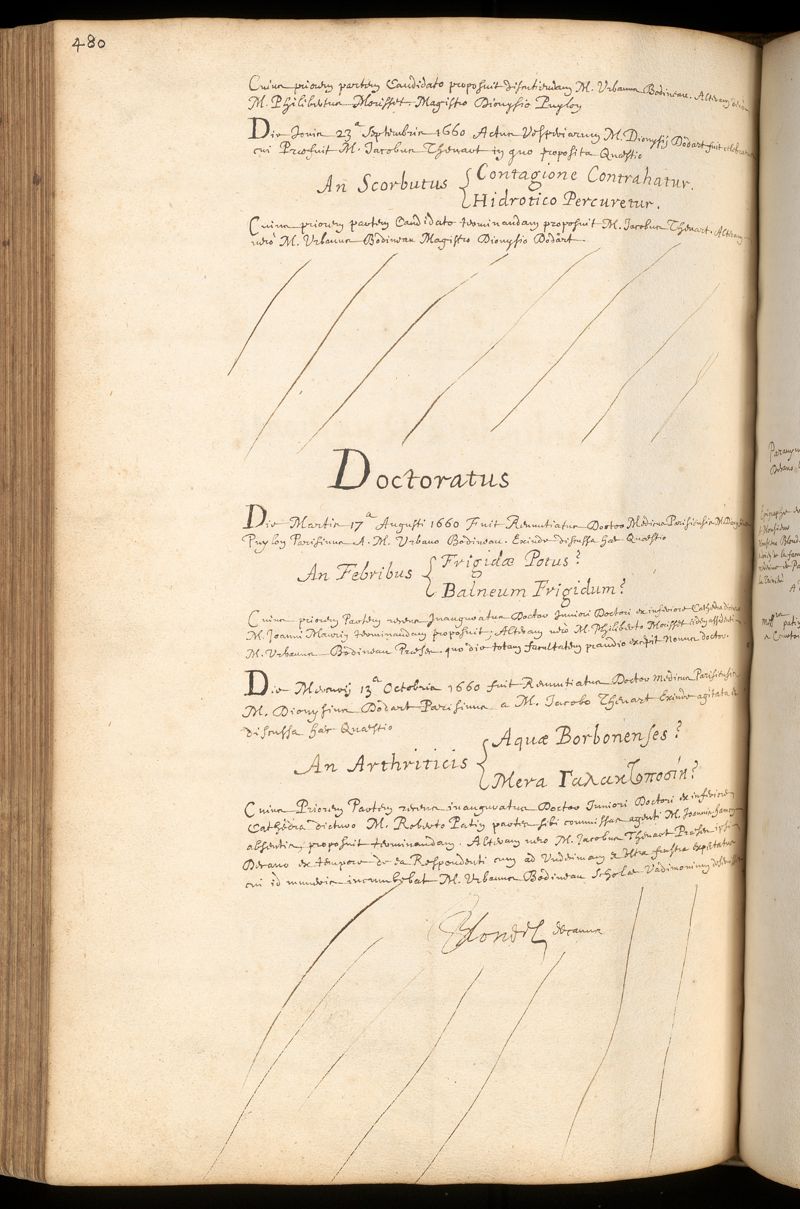 480
Cuius priorem partem Candidato proposuit discutiendam M. Urbanus Bodineau. Alteram vero
M. Philibertus Morisset. Magistro Dionysio Puylon
Die Jovis 23ª Septembris 1660 Actus Vesperiarum M. Dionysij Dodart fuit celebratus
cui Præfuit M. Jacobus Thevart in quo proposita Quæstio
An Scorbutus { Contagione Contrahatur.
Hidrotico Percuretur.
Cuius priorem partem Candidato terminandam proposuit M. Jacobus Thevart. Alteram
vero M. Urbanus Bodineau Magistro Dionysio Dodart.
Doctoratus
Die Martis 17ª Augusti 1660 Fuit Renuntiatus Doctor Medicus Parisiensis M. Dionysius
Puylon Parisinus A. M. Urbano Bodineau. Exinde discussa hæc Quæstio
An Febribus { Frigidæ Potus?
Balneum Frigidum?
Cuius priorem Partem recens Inauguratus Doctor Juniori Doctori ex inferiore Cathedra
M. Joanni Mauvin terminandam proposuit, Alteram vero M. Philiberto Morisset
M. Urbanus Bodineau Præses. quo die totam facultatem prandio excepit Novus doctor.
Die Mercurij 13ª Octobris 1660 fuit Renuntiatus Doctor Medicus Parisiensis
M. Dionysius Dodart Parisinus a M. Jacobo Thevart Exinde agitata &
discussa hæc Quæstio
An Arthriticis { Aquæ Borbonenses?
Mera Γαλακτοποσίη?
Cuius Priorem Partem recens inauguratus Doctor Juniori Doctori ex inferiore
Cathedra dicturo M. Roberto Patin partes sibi commissas agenti M. Joannis
absentis, proposuit terminandam. Alteram vero M. Jacobus Thevart Præses ipsi
Decano ex tempore de ea Respondenti cum ad Vndecimam & Vltra frustra expectatus
cui id muneris incumbebat M. Urbanus Bodineau Scholæ Vadimonium
Blondel decanus